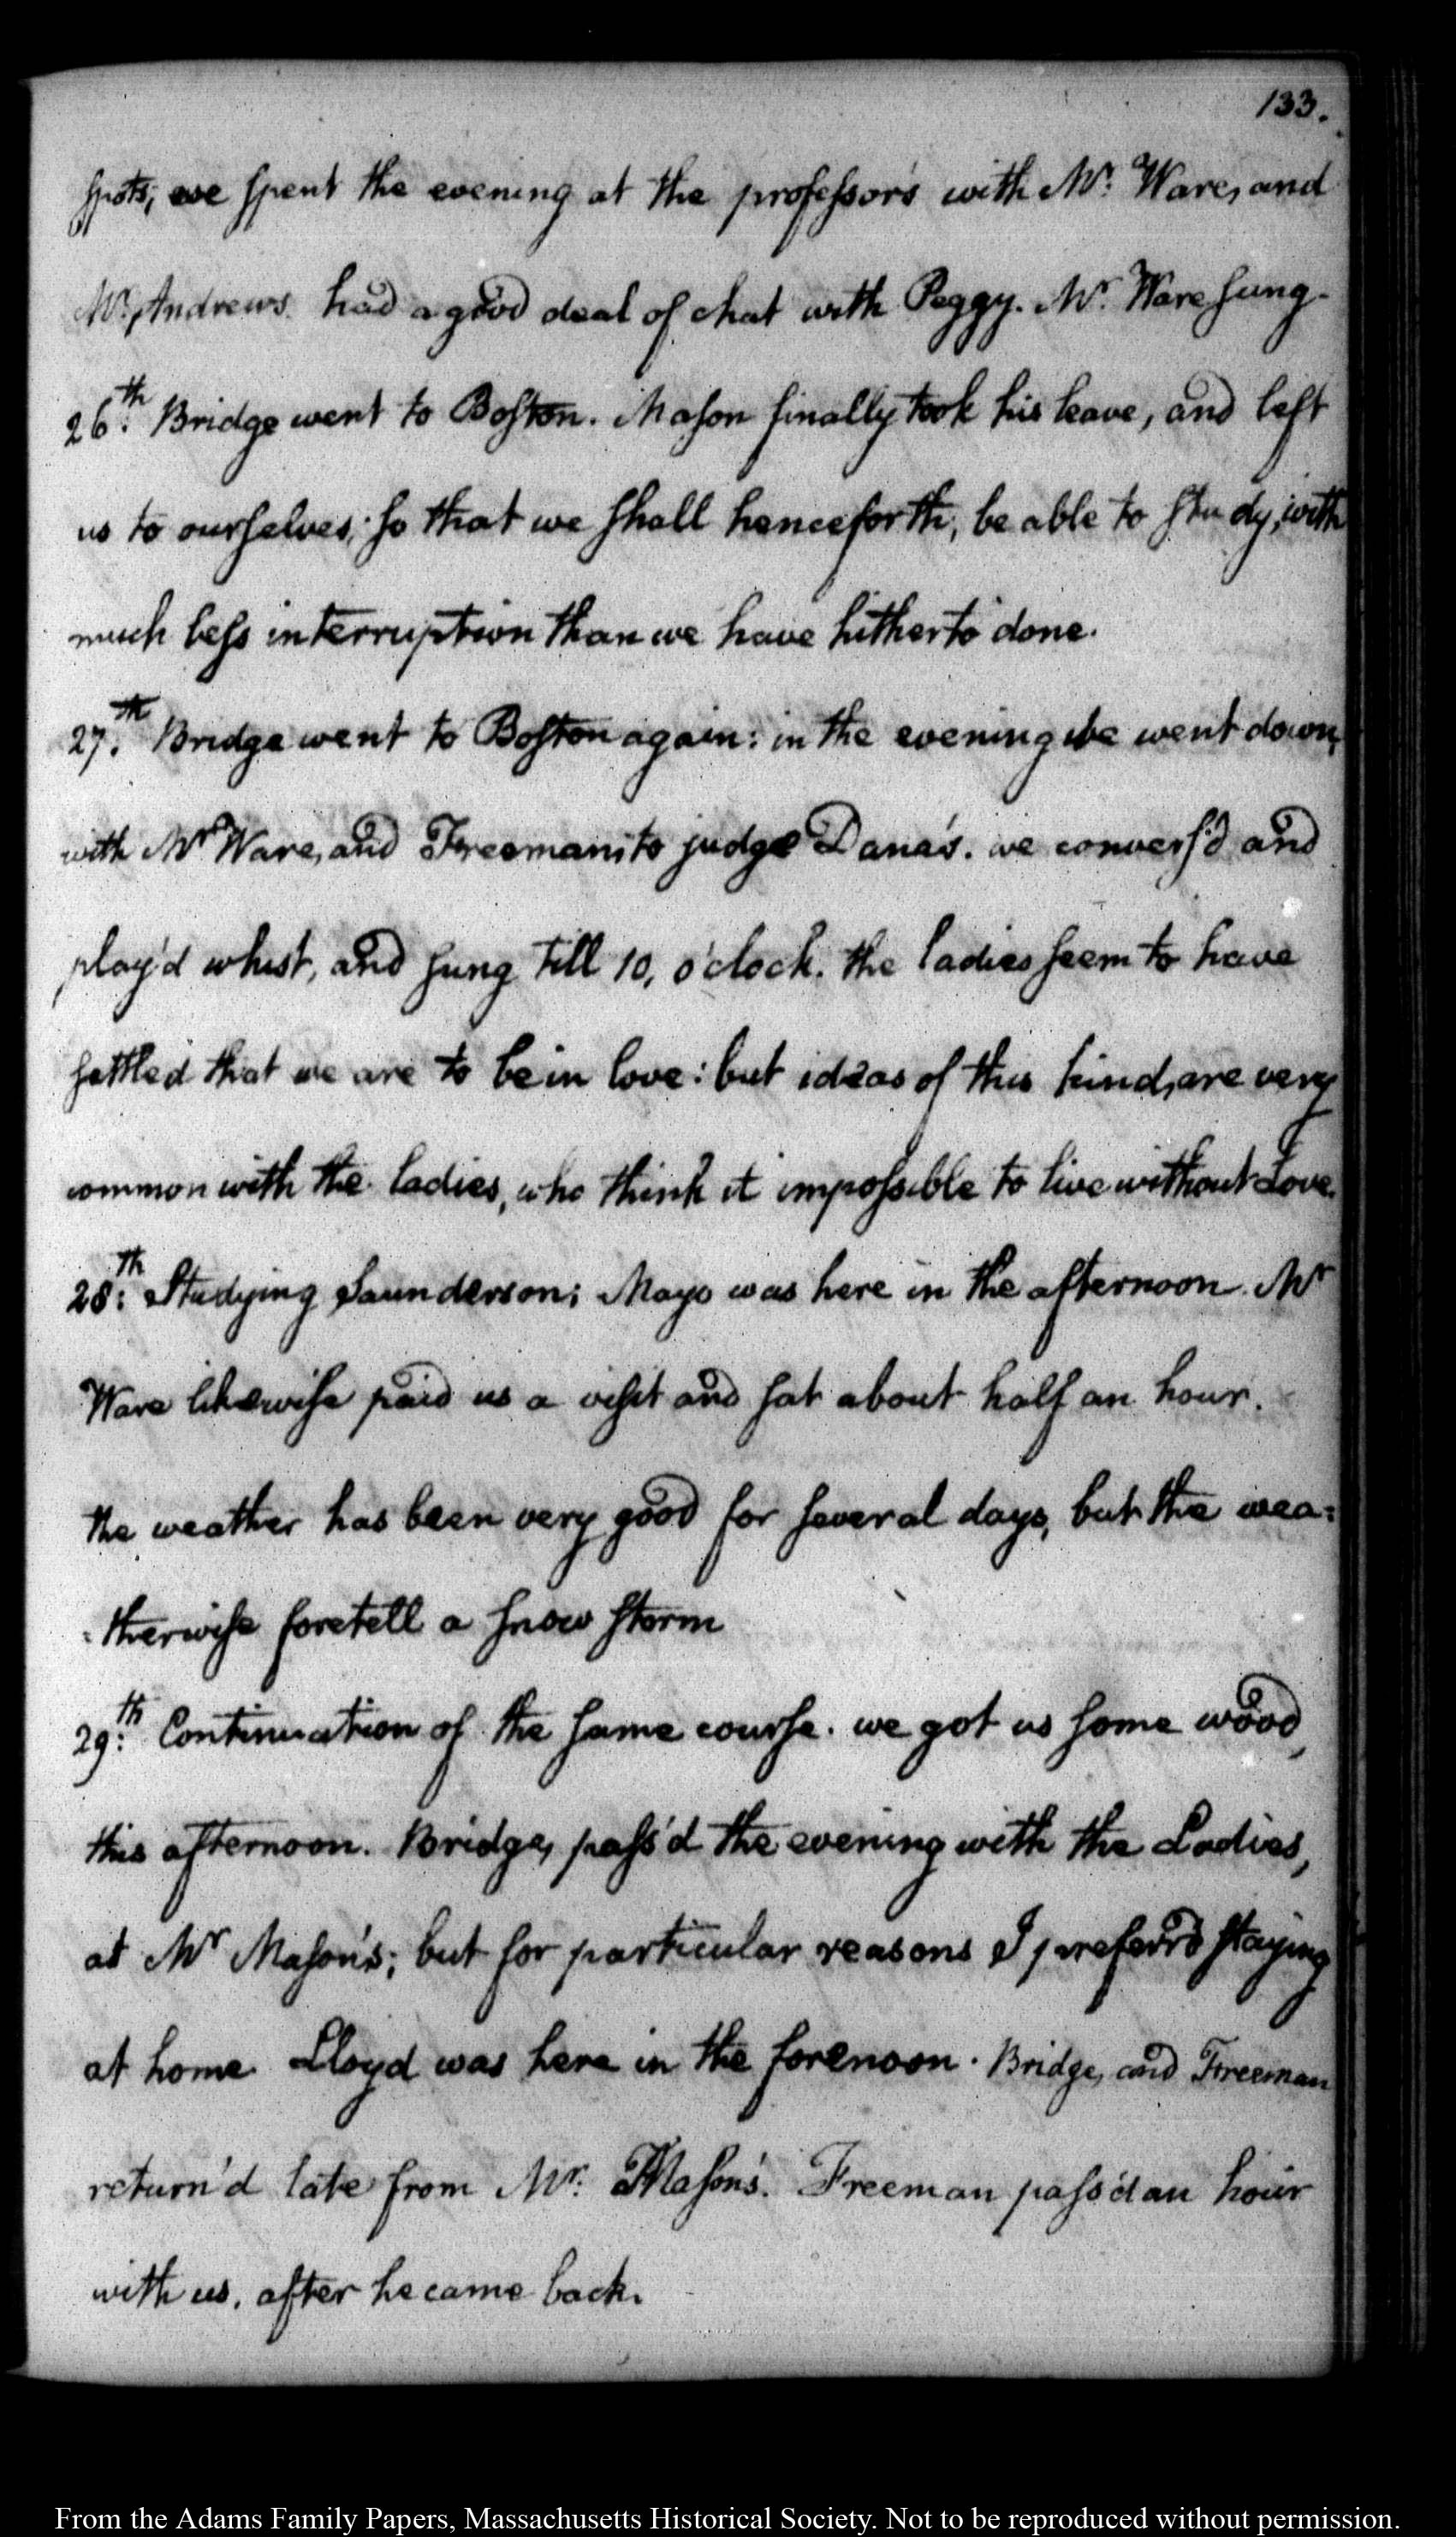 133.
spots; we spent the evening at the professor's with Mr. Ware, and
Mr. Andrews. had a good deal of chat with Peggy. Mr. Ware sung.
26th: Bridge went to Boston. Mason finally took his leave, and left
us to ourselves; so that we shall henceforth, be able to study, with
much less interruption than we have hitherto done.
27th. Bridge went to Boston again: in the evening we went down,
with Mr Ware, and Freeman, to judge Dana's. we convers'd and
play'd whist, and sung till 10, o'clock. the ladies seem to have
settled that we are to be in love: but ideas of this kind, are very
common with the ladies, who think it impossible to live without Love.
28th: Studying Saunderson; Mayo was here in the afternoon. Mr
Ware likewise paid us a visit and sat about half an hour.
the weather has been very good for several days, but the wea:
:therwise foretell a snow storm
29th: Continuation of the same course. we got us some wood,
this afternoon. Bridge, pass'd the evening with the Ladies,
at Mr Mason's; but for particular reasons I preferr'd staying
at home. Lloyd was here in the forenoon. Bridge, and Freeman
return'd late from Mr. Mason's. Freeman pass'd an hour
with us, after he came back.
From the Adams Family Papers, Massachusetts Historical Society. Not to be reproduced without permission.